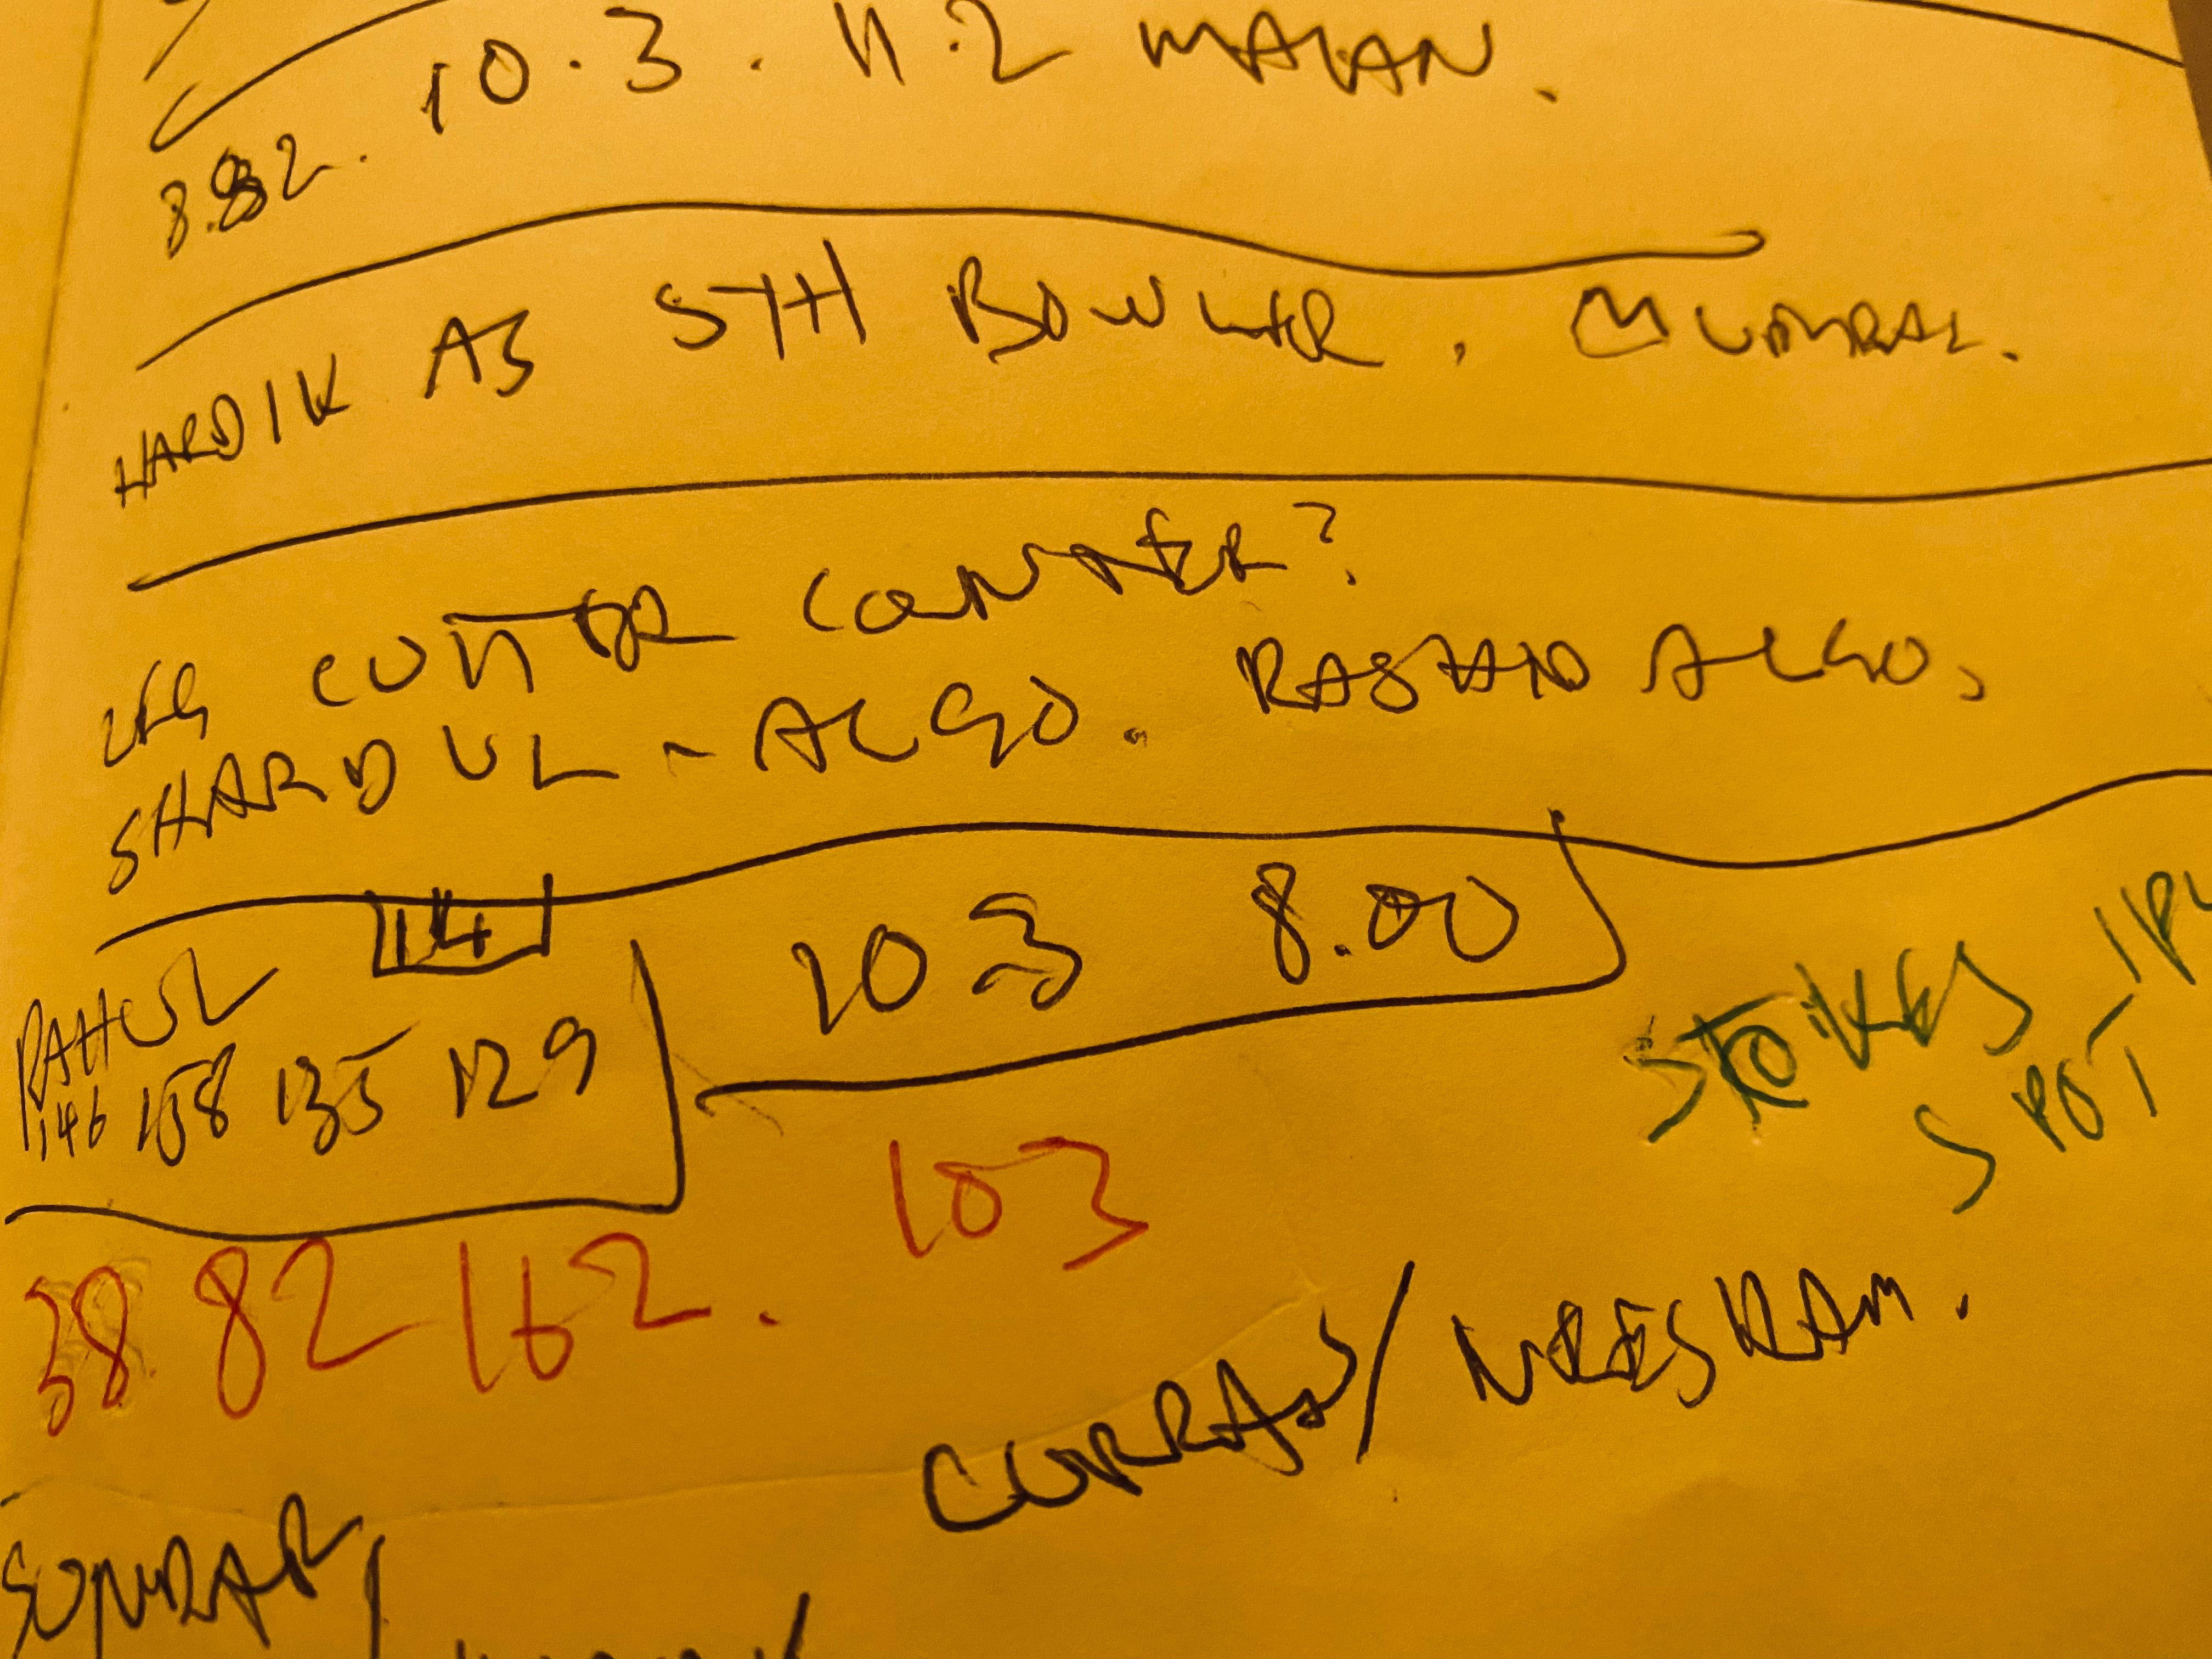 8.82. 10.3. 11.2 MALAN.
HARDIK AS 5TH BOWLER. MUMBAI.
LEG CUTTER CONNER?
SHARDUL - ALGO. RASHID ALGO.
14
RAHUL
146 158 135 129
103 8.00
STOKES IPL
SPOT
103
38 82 162.
CURRAN/
SUNDAR/